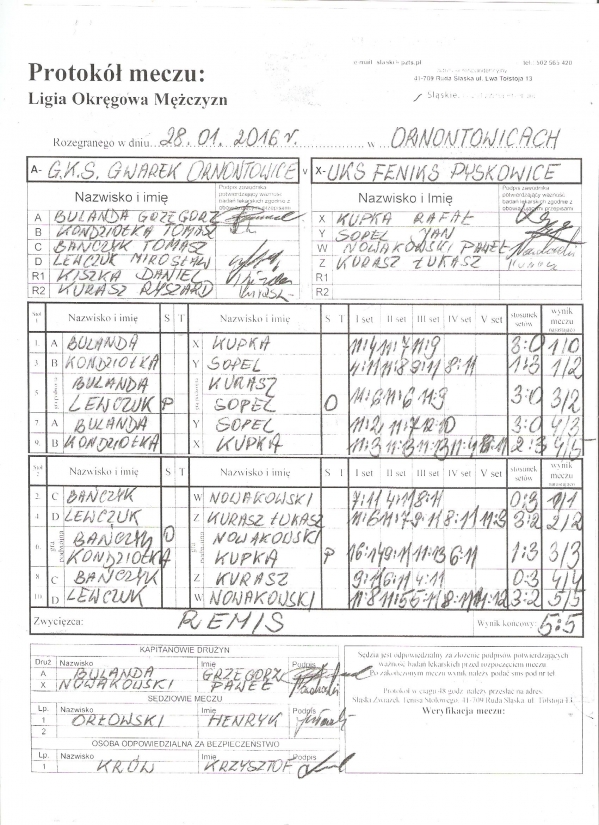 Protokół meczu:
41-709 Ruda Śląska ul. Lwa Tołstoja 13
Ligia Okręgowa Mężczyzn
Rozegranego w dniu 28.01.2016 r. w ORNONTOWICACH
A- G.K.S. GWAREK ORNONTOWICE v X- UKS FENIKS PYSKOWICE
Nazwisko i imię Podpis zawodnika potwierdzający ważność badań lekarskich zgodnie z obowiązującymi przepisami Nazwisko i imię Podpis zawodnika potwierdzający ważność badań lekarskich zgodnie z obowiązującymi przepisami
A BULANDA GRZEGORZ X KUPKA RAFAŁ
B KONDZIOŁKA TOMASZ Y SOPEL JAN
C BAŃCZYK TOMASZ W NOWAKOWSKI PAWEŁ
D LEWCZUK MIROSŁAW Z KURASZ ŁUKASZ
R1 KISZKA DANIEL R1
R2 KURASZ RYSZARD R2
Stół 1 Nazwisko i imię S T Nazwisko i imię S T I set II set III set IV set V set stosunek setów wynik meczu
1. A BULANDA X KUPKA 11:4 11:7 11:9 3:0 1/0
3. B KONDZIOŁKA Y SOPEL 4:11 11:8 9:11 8:11 1:3 1/2
5. BULANDA KURASZ
LEWCZUK P SOPEL O 11:6 11:6 11:9 3:0 3/2
7. A BULANDA Y SOPEL 11:2 11:7 12:10 3:0 4/3
9. B KONDZIOŁKA X KUPKA 2:3 4/5
Stół 2 Nazwisko i imię S T Nazwisko i imię S T I set II set III set IV set V set stosunek setów wynik meczu
2. C BAŃCZYK W NOWAKOWSKI 7:11 4:11 8:11 0:3 1/1
4. D LEWCZUK Z KURASZ ŁUKASZ 11:6 11:7 9:11 8:11 11:9 3:2 2/2
6. BAŃCZYK O NOWAKOWSKI
KONDZIOŁKA KUPKA P 16:14 9:11 11:13 6:11 1:3 3/3
8 C BAŃCZYK Z KURASZ 9:11 6:11 4:11 0:3 4/4
10. D LEWCZUK W NOWAKOWSKI 3:2 5/5
Zwycięzca: REMIS Wynik końcowy: 5:5
KAPITANOWIE DRUŻYN
Druż Nazwisko Imię Podpis
A BULANDA GRZEGORZ
X NOWAKOWSKI PAWEŁ
SĘDZIOWIE MECZU
Lp. Nazwisko Imię Podpis
1 ORŁOWSKI HENRYK
2
OSOBA ODPOWIEDZIALNA ZA BEZPIECZEŃSTWO
Lp. Nazwisko Imię Podpis
1 KRÓW KRZYSZTOF
Sędzia jest odpowiedzialny za złożenie podpisów potwierdzających
ważność badań lekarskich przed rozpoczęciem meczu
Po zakończonym meczu wynik należy podać sms pod nr tel.
Protokół w ciągu 48 godz. należy przesłać na adres:
Śląski Związek Tenisa Stołowego, 41-709 Ruda Śląska ul. Tołstoja 13
Weryfikacja meczu: